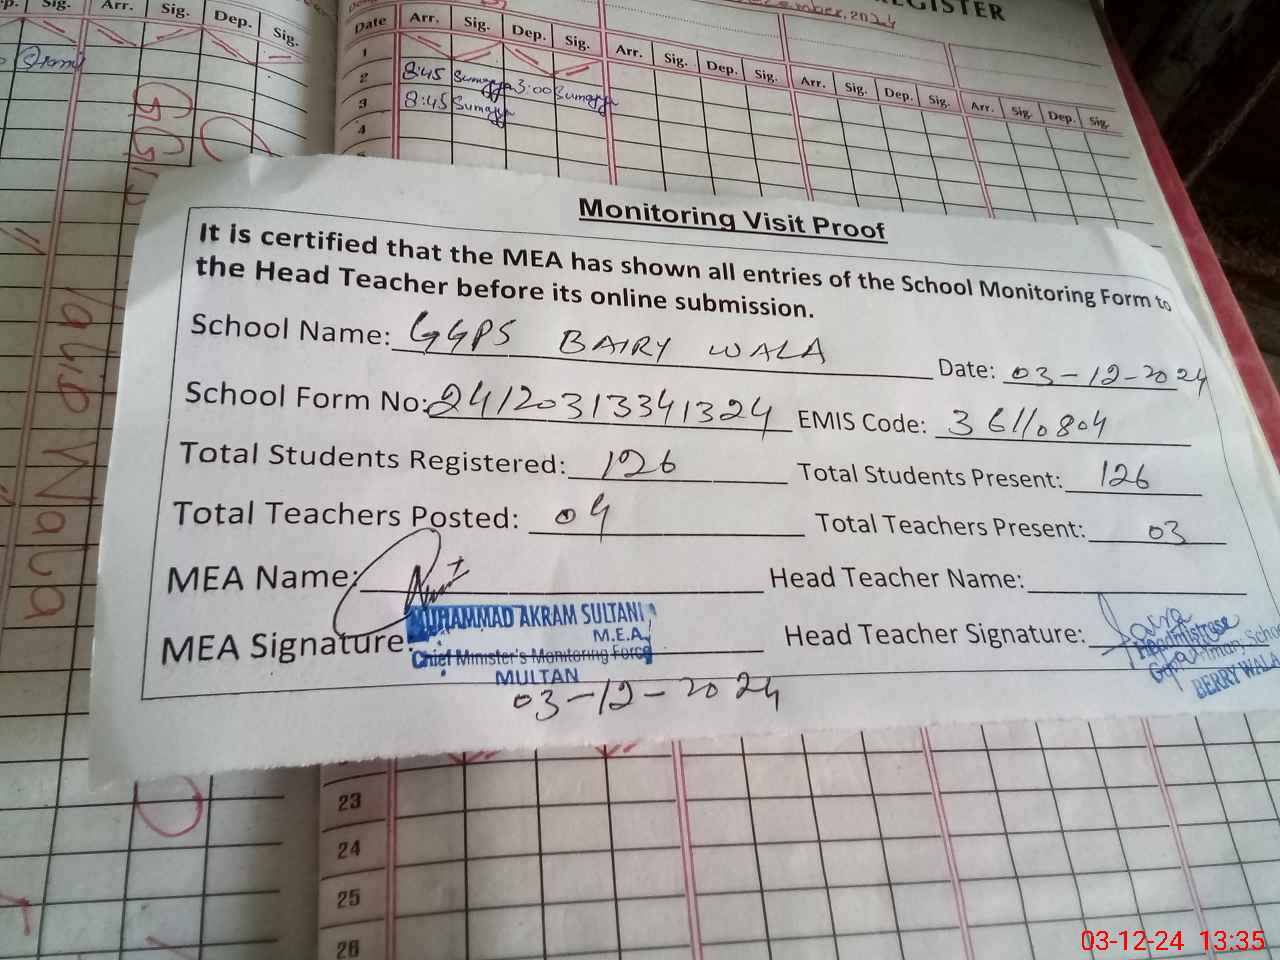 p. Sig. Arr. Sig. Dep. Sig.
December, 2024
REGISTER
Date Arr. Sig. Dep. Sig. Arr. Sig. Dep. Sig. Arr. Sig. Dep. Sig. Arr. Sig. Dep. Sig.
1
2 8:45 Sumayya 3:00 Sumayya
3 8:45 Sumayya
4
Monitoring Visit Proof
It is certified that the MEA has shown all entries of the School Monitoring Form to
the Head Teacher before its online submission.
School Name: GGPS BAIRY WALA
Date: 03-12-2024
School Form No: 24120313341324 EMIS Code: 36110804
Total Students Registered: 126 Total Students Present: 126
Total Teachers Posted: 04 Total Teachers Present: 03
MEA Name: Head Teacher Name:
MEA Signature: Head Teacher Signature:
MUHAMMAD AKRAM SULTANI
M.E.A.
Chief Minister's Monitoring Force
MULTAN
03-12-2024
Headmistress
Primary School
BERRY WALA
Wala
23
24
25
26
03-12-24 13:35